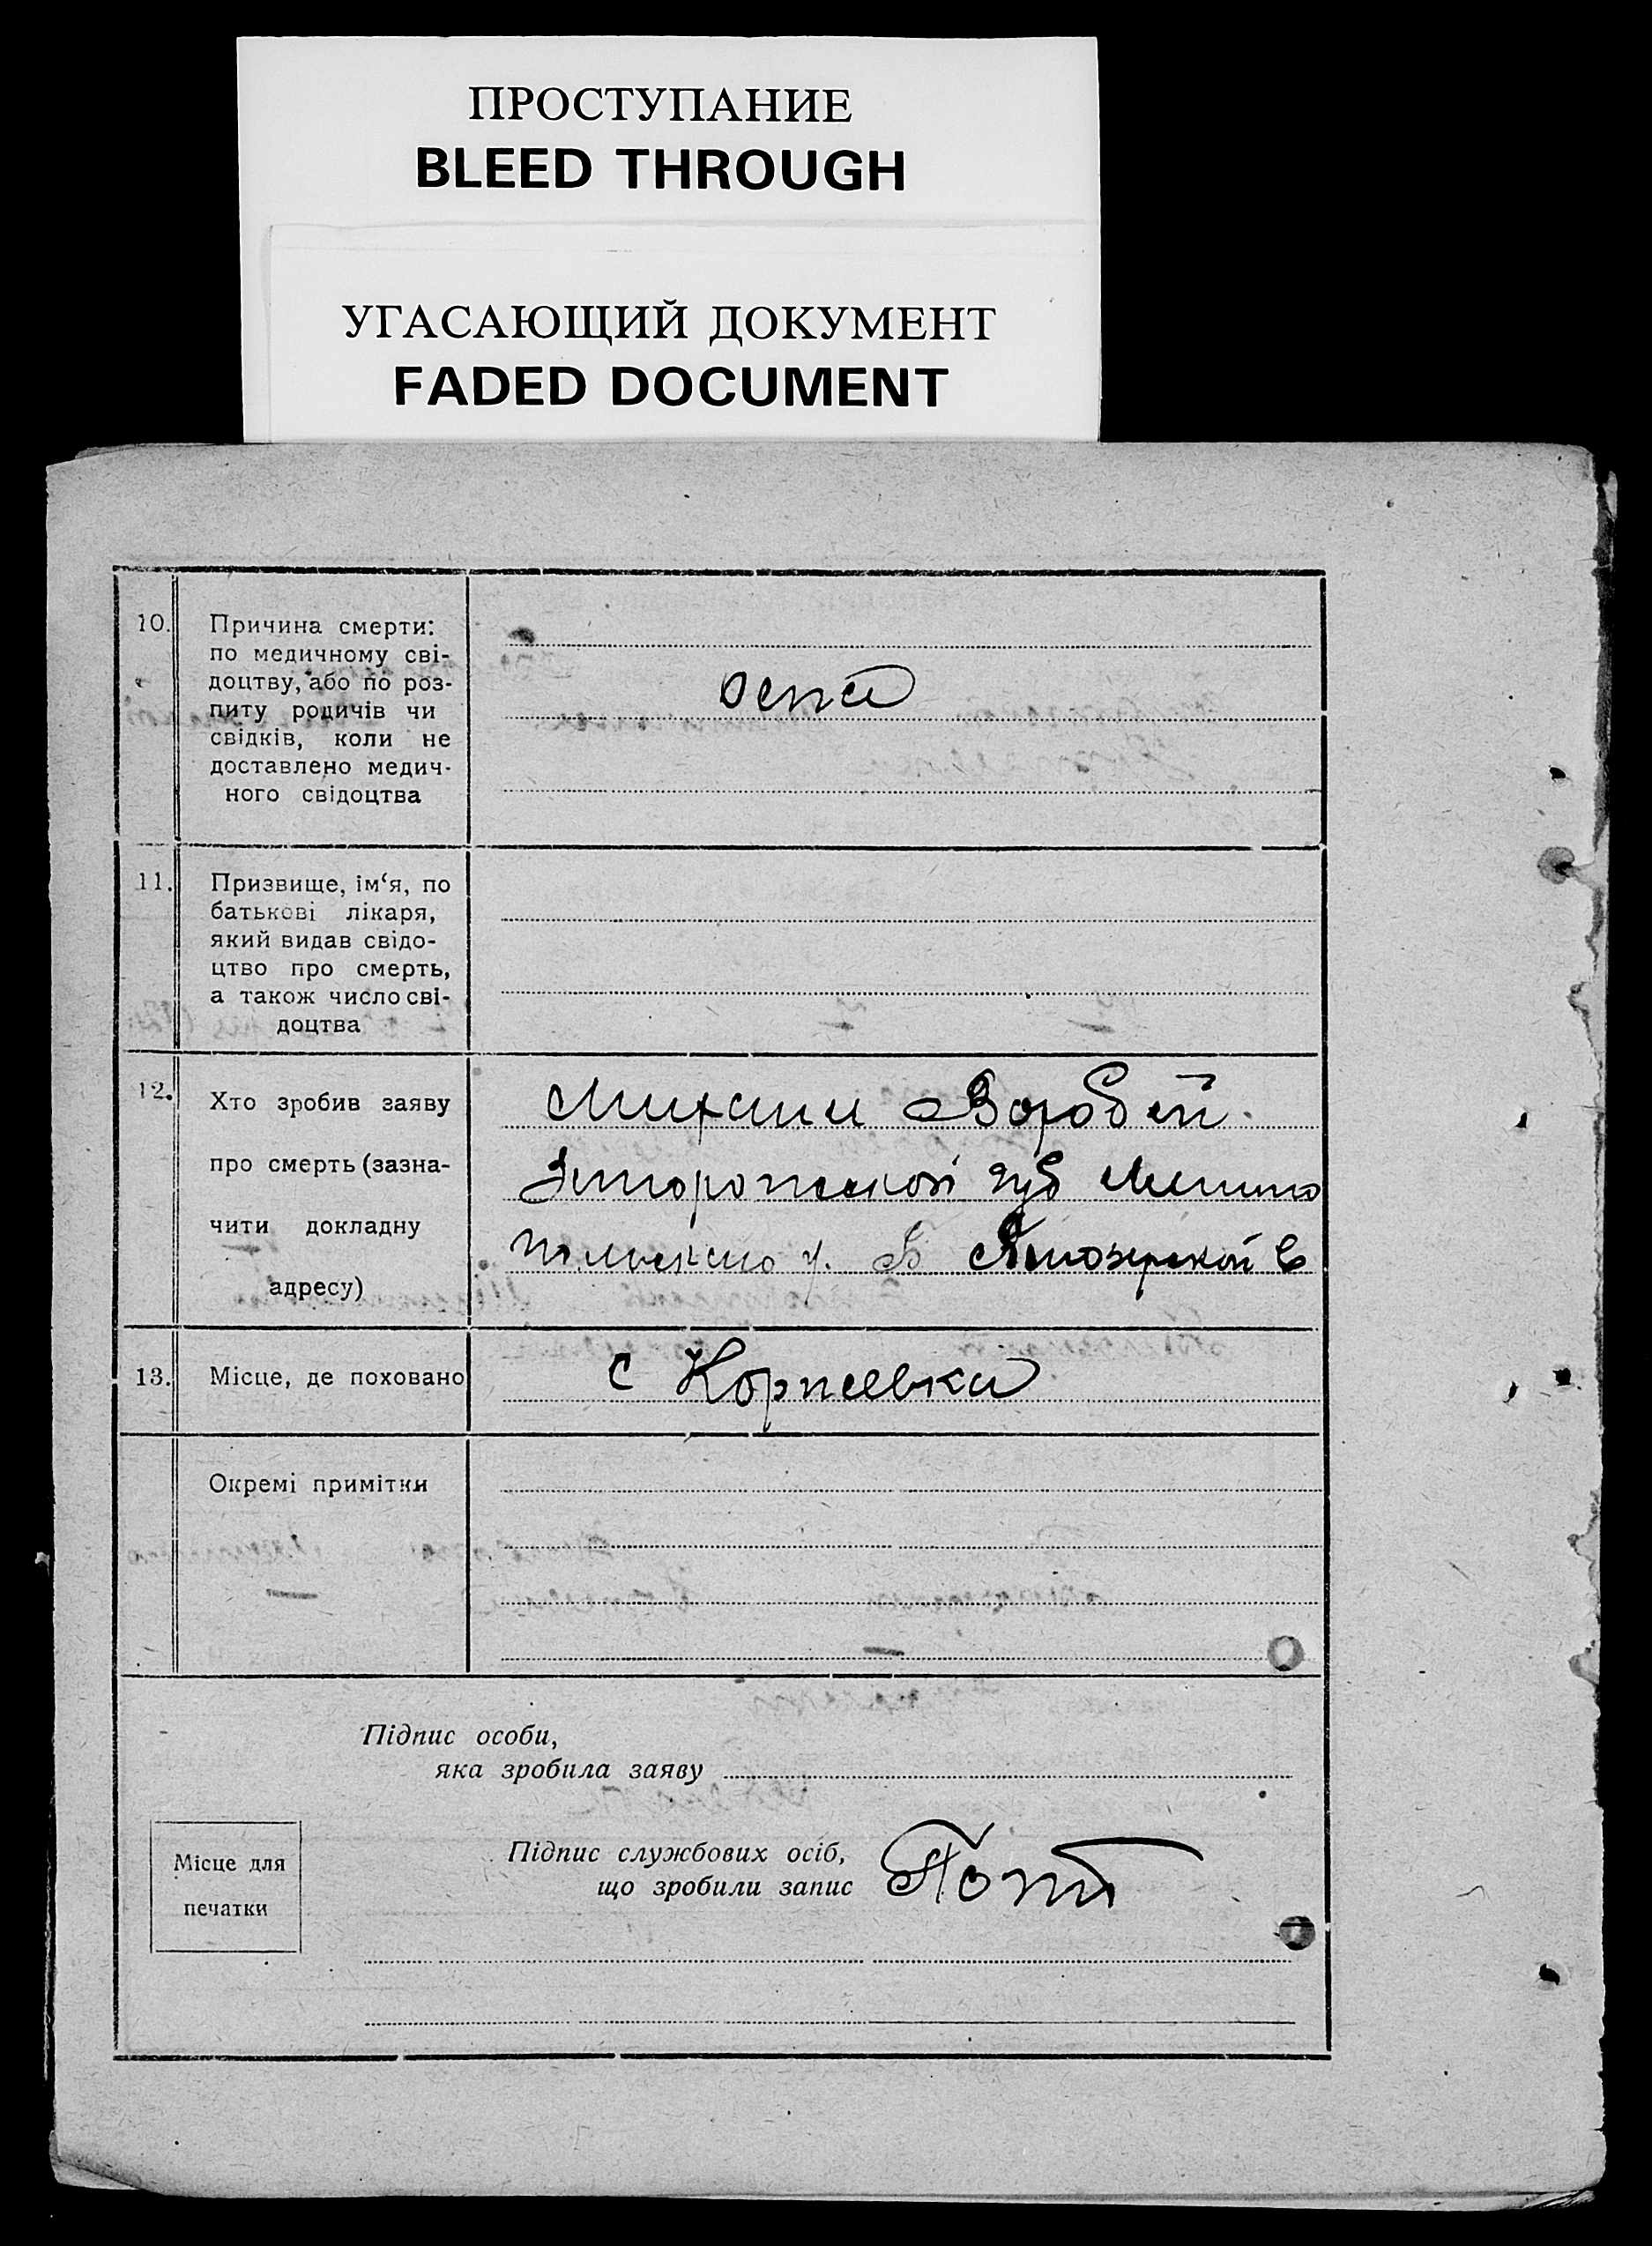 ПРОСТУПАНИЕ
BLEED THROUGH
УГАСАЮЩИЙ ДОКУМЕНТ
FADED DOCUMENT
10. Причина смерти:
по медичному сві-
доцтву, або по роз-
питу родичів чи
свідків, коли не
доставлено медич-
ного свідоцтва
оспа
11. Призвище, ім‘я, по
батькові лікаря,
який видав свідо-
цтво про смерть,
а також число сві-
доцтва
12. Хто зробив заяву
про смерть (зазна-
чити докладну
адресу)
Михаил Воробей
губ
у. Б
13. Місце, де поховано
с Корнеевка
Окремі примітки
Підпис особи,
яка зробила заяву
Місце для
печатки
Підпис службових осіб,
що зробили запис